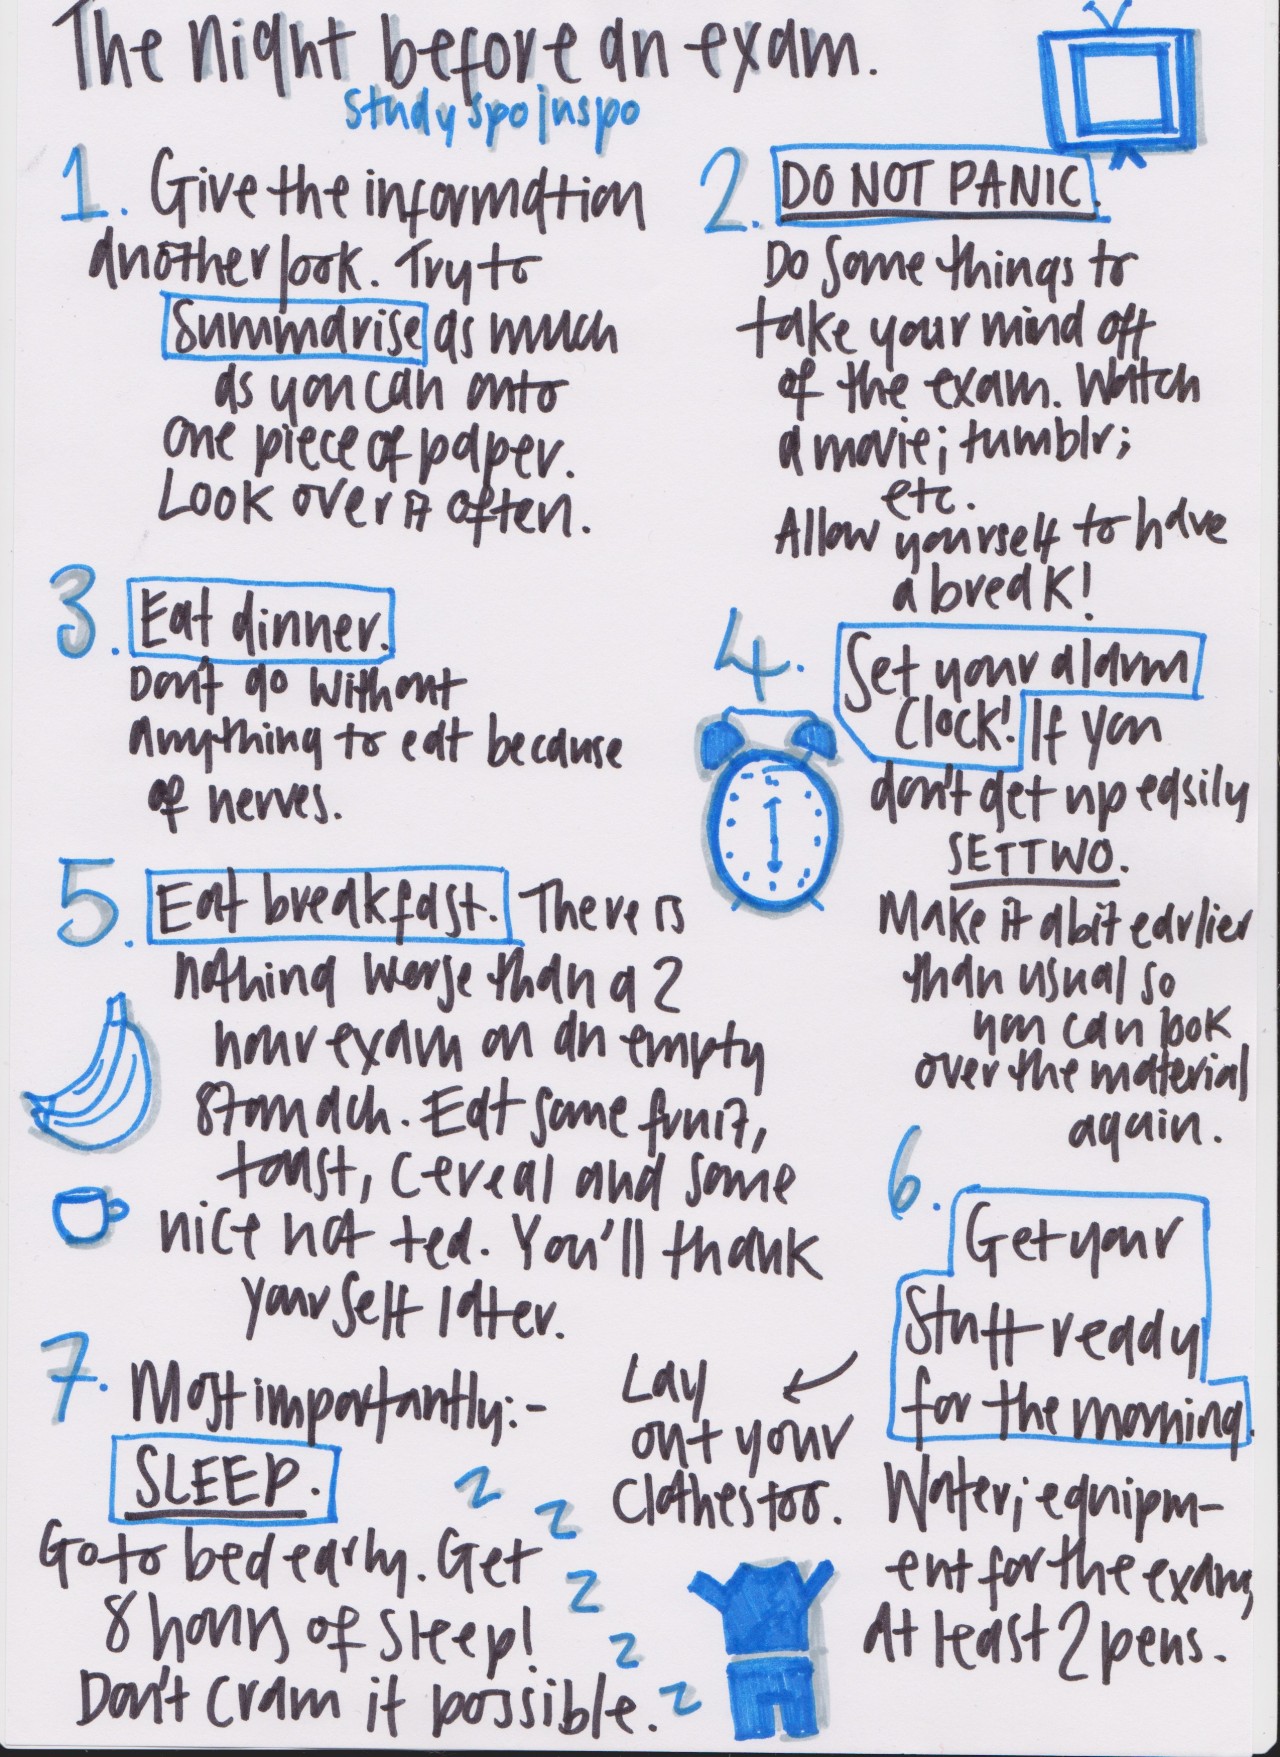 The night before an exam.
studyspoinspo
1. Give the information
another look. Try to
Summarise as much
as you can onto
one piece of paper.
Look over it often.
2. DO NOT PANIC.
Do some things to
take your mind off
of the exam. Watch
a movie; tumblr;
etc.
Allow yourself to have
a break!
3. Eat dinner.
Don't go without
anything to eat because
of nerves.
4. Set your alarm
clock! If you
don't get up easily
SET TWO.
Make it a bit earlier
than usual so
you can look
over the material
again.
5. Eat breakfast. There is
nothing worse than a 2
hour exam on an empty
stomach. Eat some fruit,
toast, cereal and some
nice hot tea. You'll thank
yourself later.
6. Get your
stuff ready
for the morning.
Water; equipm-
ent for the exam,
At least 2 pens.
Lay
out your
clothes too.
7. Most importantly:-
SLEEP.
Go to bed early. Get
8 hours of sleep!
Don't cram if possible.
z
z
z
z
z